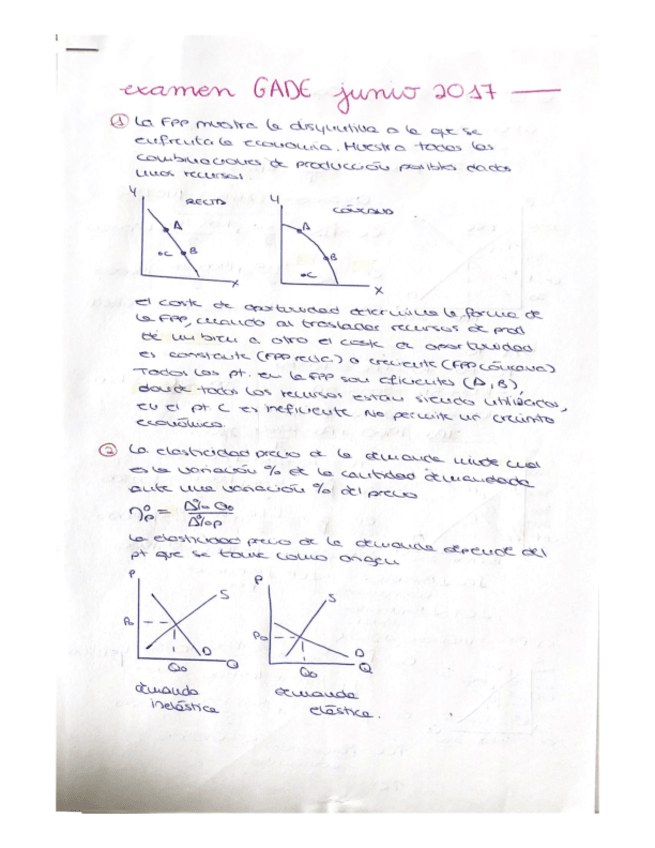 examen GADE junio 2017
① La FPP muestra la disyuntiva a la que se
enfrenta la economía. Muestra todas las
combinaciones de producción posibles dados
unos recursos.
Y RECTA Y CÓNCAVA
A A
B B
C C
X X
el coste de oportunidad determina la forma de
la FPP, cuando al trasladar recursos de prod
de un bien a otro el coste de oportunidad
es constante (FPP recta) o creciente (FPP cóncava)
Todos los pt. en la FPP son eficientes (A, B),
donde todos los recursos están siendo utilizados,
en el pt C es ineficiente. No permite un crecimto
económico.
② La elasticidad precio de la demanda mide cual
es la variación % de la cantidad demandada
ante una variación % del precio
ηᴰp = Δ% QD / Δ% P
La elasticidad precio de la demanda depende del
pt que se tome como origen
P S P S
P₀ P₀
D D
Q₀ Q Q₀ Q
demanda demanda
inelástica elástica.